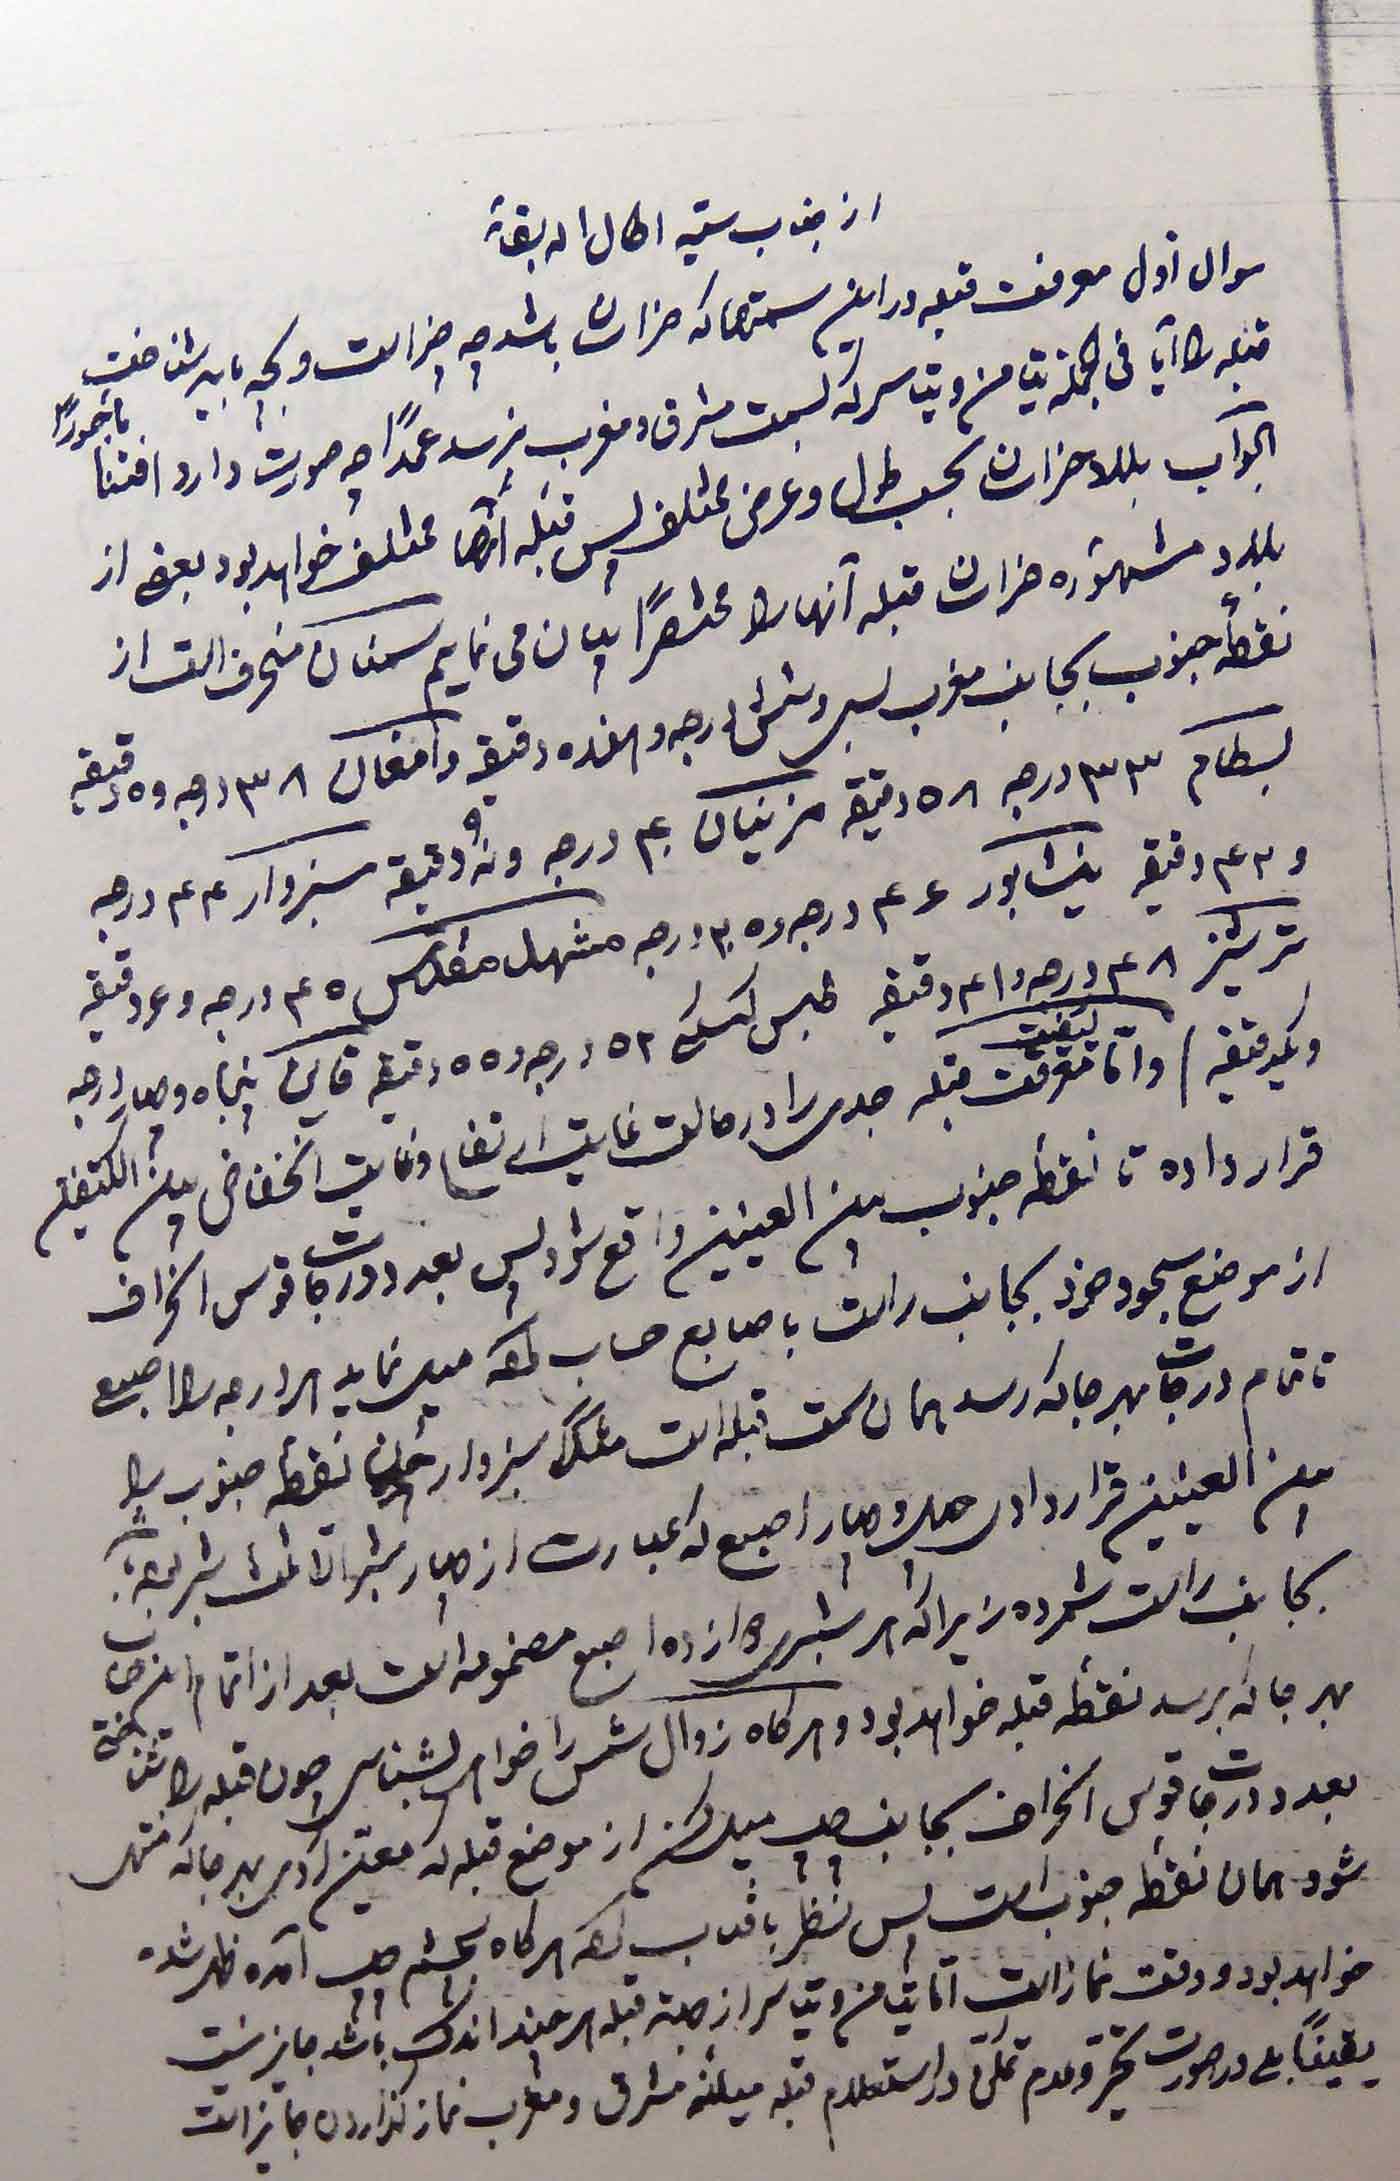 از جناب سید اطال اله بقائه
سوال اول معرفت قبله در این سمتها که خراسان باشد چه چیز است و بچه باید شناخت
قبله را آیا فی الجمله تیامن و تیاسر که بسمت مشرق و مغرب نرسد عمدًا چه صورت دارد افتنا مأجورًا
الجواب بلاد خراسان بحسب طول و عرض مختلف پس قبله آنها مختلف خواهد بود بعضی از
بلاد مشهوره خراسان قبله آنها را مختصرًا بیان می نمایم سمنان منحرف است از
نقطه جنوب بجانب مغرب بسی و شش درجه و هفده دقیقه دامغان ۳۸ درجه و ۵ دقیقه
بسطام ۳۳ درجه ۵۸ دقیقه مزینان ۴۰ درجه و نه دقیقه سبزوار ۴۴ درجه
و ۴۳ دقیقه نیشابور ۴۶ درجه و ۳۰ درجه مشهد مقدس ۴۵ درجه و ۶ دقیقه
ترشیز ۴۸ درجه و ۴۱ دقیقه طبس ۵۲ درجه و ۵۵ دقیقه قاین پنجاه و چهار درجه
و یکدقیقه و اما کیفیت معرفت قبله جدی را در حالت غایت ارتفاع و غایت انخفاض بین الکتفین
قرار داده تا نقطه جنوب بین العینین واقع شود پس بعدد درجات قوس انحراف
از موضع سجود خود بجانب راست باصابع حساب کرده میل نماید هر درجه را اصبع
تا تمام درجات بهر جا که رسد همان سمت قبله است مثلاً سبزوار نقطه جنوب را
بین العینین قرار دادی چهل و چهار اصبع که عبارت از چهار شبر الا ثلث شبر بوده
بجانب راست شمرده زیرا که هر شبری دوازده اصبع مضمومه است بعد از اتمام این حساب
بهر جا که برسد نقطه قبله خواهد بود و هرگاه زوال شمس را خواهی بشناسی چون قبله را شناختی
بعدد درجات قوس انحراف بجانب چپ میل کن از موضع قبله که معین کردی بهر جا که منتهی
شود همان نقطه جنوب است پس نظر بآفتاب کرده هرگاه بچشم چپ آمده ظهر شده
خواهد بود و وقت نماز است اما تیامن و تیاسر از جهة قبله هر چند اندک باشد جایز نیست
یقینًا بلی در صورت تحیّر و عدم تمکن در استعلام قبله میانه مشرق و مغرب نماز گذاردن جایز است